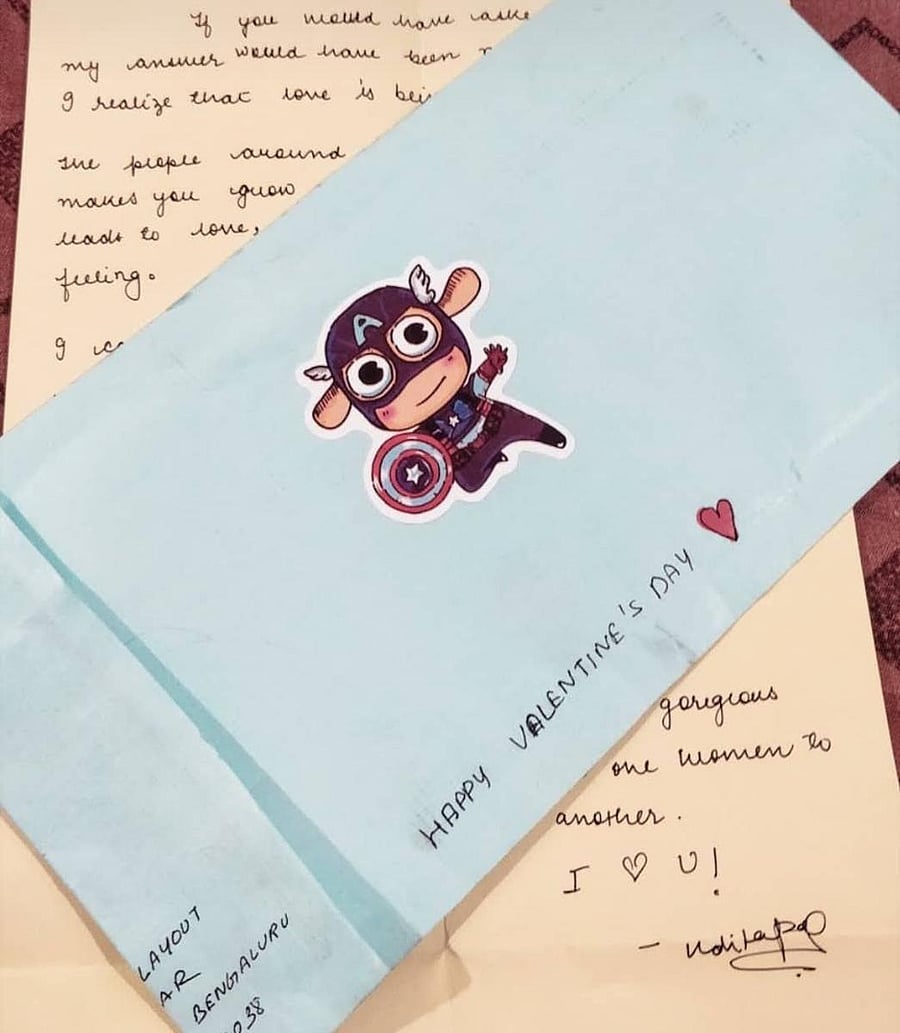 If you would have aske
my answer would have been
I realize that love is bei
The people around
makes you grow
leads to love,
feeling.
I
A
HAPPY VALENTINE'S DAY
gorgeous
one women to
another.
I ♡ U!
LAYOUT
AR
BENGALURU
038